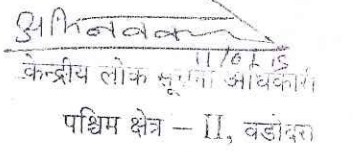 11/01/15
केन्द्रीय लोक सूचना अधिकारी
पश्चिम क्षेत्र – II, वडोदरा